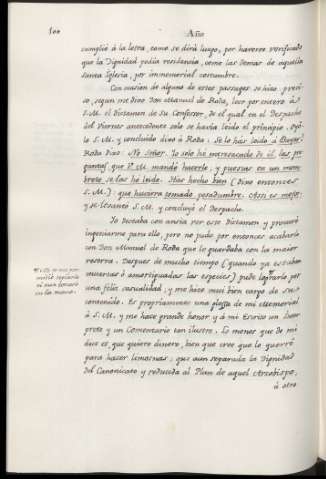 100
Año
cumplió á la letra, como se dirá luego, por haverse verificado
que la Dignidad pedia residencia, como las demas de aquella
Santa Iglesia, por immemorial costumbre.
Con ocasion de alguno de estos passages se hizo preci-
so, segun me dixo Don Manuel de Roda, leer por entero á
S.M. el dictamen de su Confesor, de el qual en el Despacho
del Viernes antecedente solo se havia leido el principio. Oyó-
lo S.M. y concluido dixo á Roda: Se lo has leido á
Roda dixo: No Señor. Yo solo hé interesado de él, las pre-
guntas, que V.M. mandó hacerle, y puestas en un mem-
brete se las hé leido. Has hecho bien (dixo entonces
S.M.): que huviera tomado pesadumbre. Assi es mejor:
y se levantó S.M. y concluyó el Despacho.
Yo deseaba con ansia ver este dictamen y procuré
ingeniarme para ello, pero no pude por entonces acabarlo
con Don Manuel de Roda que lo guardaba con la maior
reserva. Despues de mucho tiempo (quando ya estaban
muertas ó amortiguadas las especies) pude lograrlo por
una feliz casualidad, y me hice mui bien cargo de su
contenido. Es propriamente una glossa de mi Memorial
á S.M. y me hace grande honor y á mi Escrito un Inter-
prete y un Comentario tan ilustre. Lo menos que de mi
dice es, que quiero dinero, bien que cree que lo querré
para hacer limosnas: que aun separada la Dignidad
del Canonicato y reducida al Plan de aquel Arzobispo,
á otro